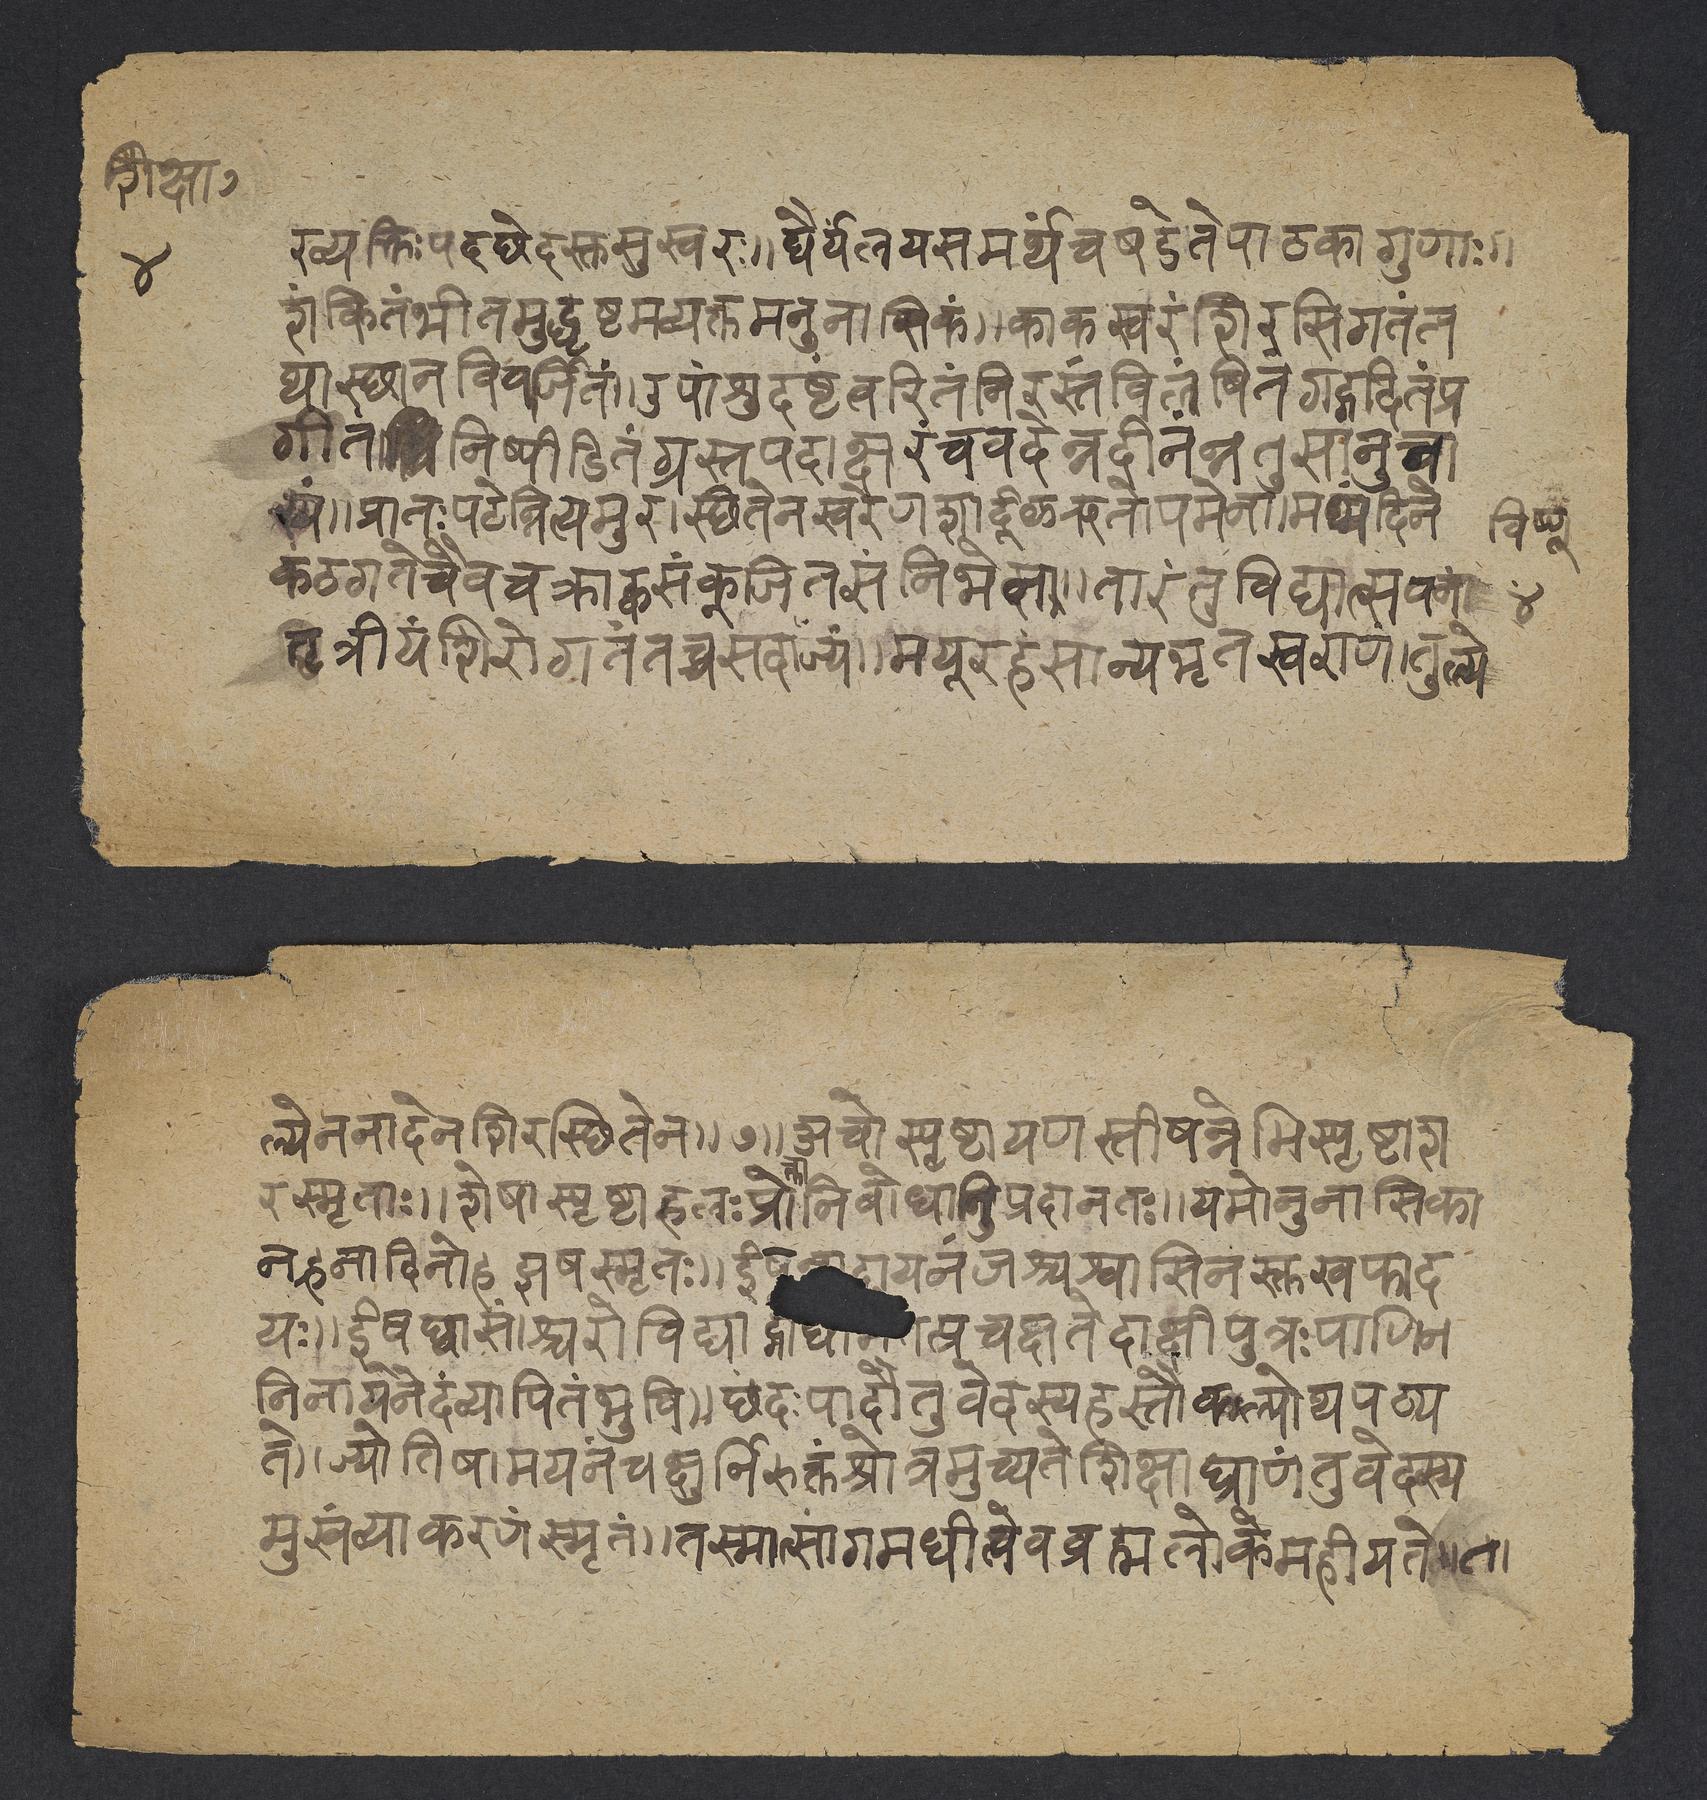 शिक्षा॰
४
रव्यक्तिः पदछेदस्तसुस्वरः॥ धैर्यंलयसमर्थंचषडेतेपाठकागुणाः॥
शंकितंभीतमुद्घृष्टमव्यक्तमनुनासिकं॥ काकस्वरंशिरसिगतंत
थास्छानविवर्जितं॥ उपांशुदष्टंत्वरितंनिरस्तंविलंबितंगद्गदितंप्र
गीतं निष्पीडितंग्रस्तपदाक्षरंचवदेन्नदीनंन्नतुसानुना
स्यं॥ प्रातःपठेन्नित्यमुरःस्छितेनस्वरेणशार्दूलरुतोपमेन। मध्यंदिने
कंठगतेचैवचक्राह्वसंकूजितसंनिभेन॥ तारंतुविद्यात्सवनं
तृत्रीयंशिरोगतंतच्चसदाज्यं॥ मयूरहंसान्यभृतस्वराणांतुल्ये
विष्णू
४
ल्येननादेनशिरस्छितेन॥ ७॥ अचोस्पृष्टायणस्तीषन्नेमिस्पृष्टाश
रस्मृताः॥ शेषास्पृष्टाहलःप्रोक्तानिबोधानुप्रदानतः॥ यमोनुनासिका
नह्नादिनोहझषस्मृतः॥ ईषन्नादायनंजश्चश्वासिनस्तखफाद
यः॥ ईषछ्वासांश्चरोविद्याद्गोर्धामैतत्प्रचक्षतेदाक्षीपुत्रःपाणिन
निनायेनेदंव्यापितंभुवि॥ छंदःपादौतुवेदस्यहस्तौकल्पोथपठ्य
ते। ज्योतिषामयनंचक्षुर्निरुक्तंश्रोत्रमुच्यतेशिक्षाघ्राणंतुवेदस्य
मुखंव्याकरणंस्मृतं॥ तस्मात्सांगमधीत्येवब्रह्मलोकेमहीयते॥ त।